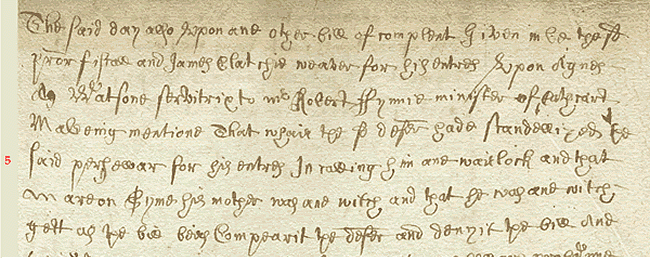 The said day also Upon ane other bill of complent Given in be the sd
pror fiscal and James Clatchie weaver for his entres Upon Agnes
Watsone servitrix to Mr Robert ffynnie minister of Cathcart
Makeing mentione That whair the sd defer hade scandelized the
5 said persewar for his entres In calling him ane warlock and that
Mareon Gyme his mother was ane witch and that he was ane witch
gett as the bill bears Compearit the defer and denyit the bill And